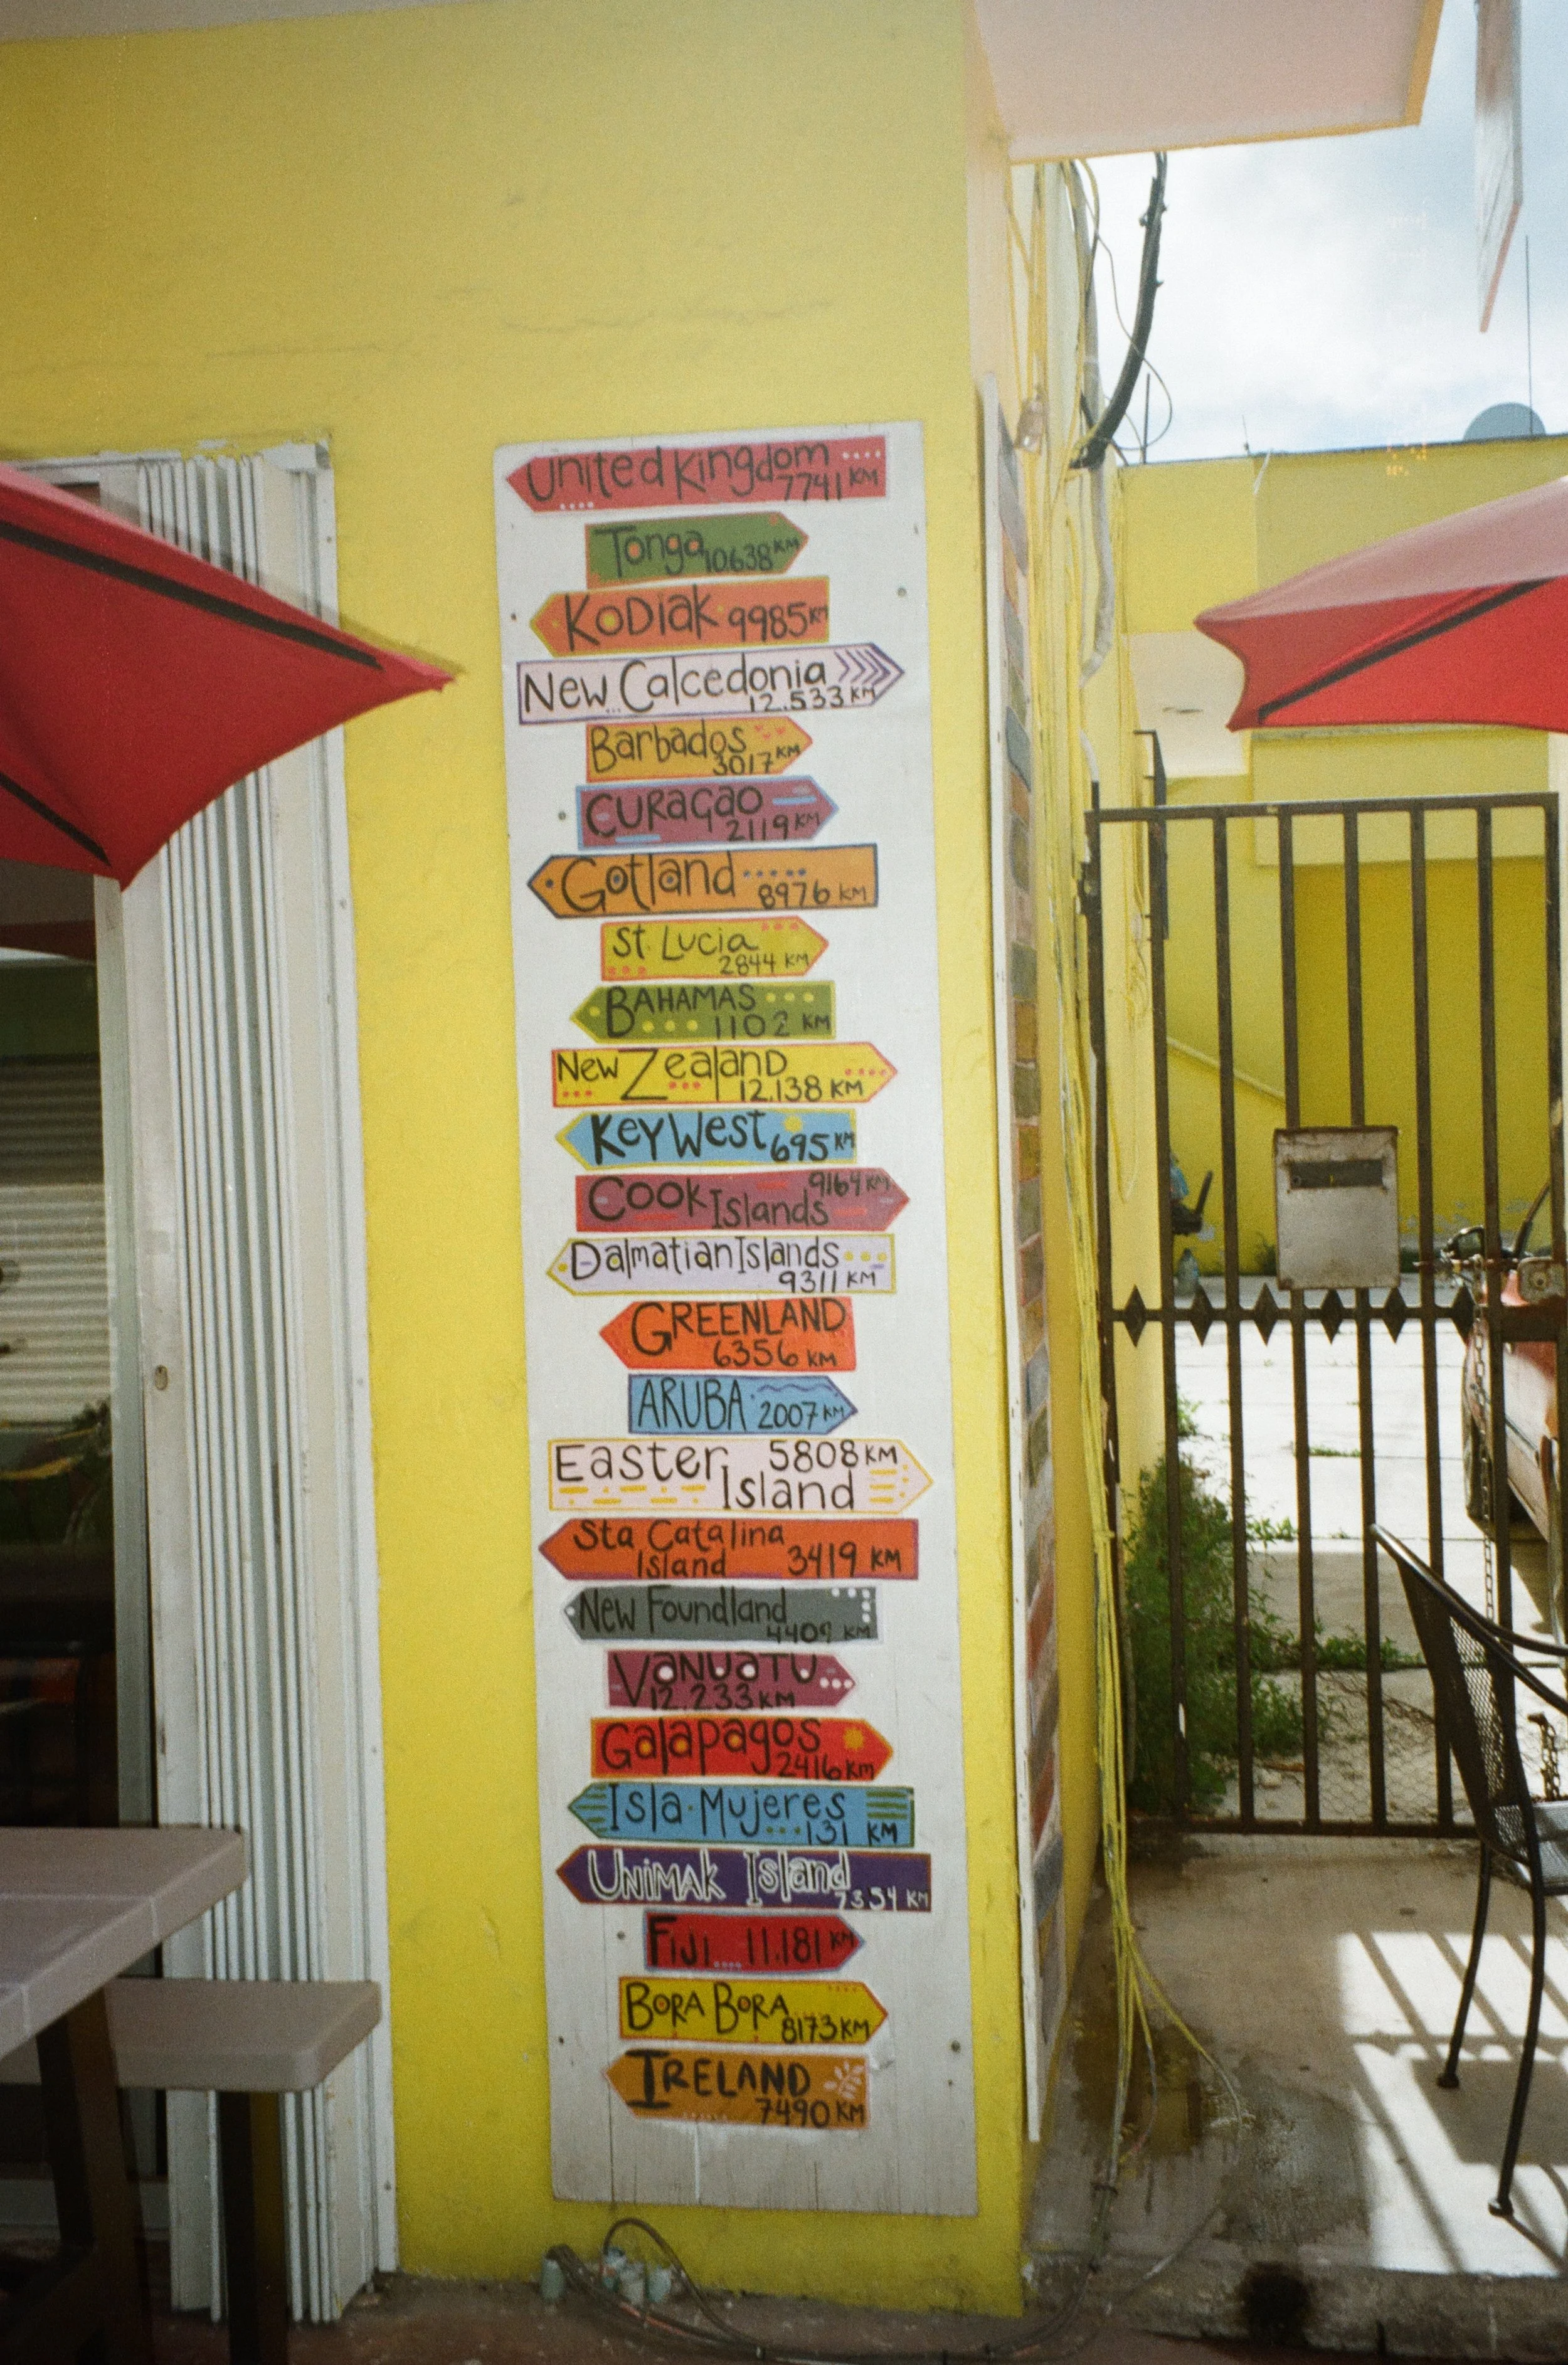 United Kingdom
7741 KM
Tonga 10.638 KM
KODiaK 9985 KM
New Calcedonia
12.533 KM
Barbados
3017 KM
CURaçao
2119 KM
Gotland
8976 KM
St. Lucia
2844 KM
BAHAMAS
1102 KM
New ZealanD
12.138 KM
Key West 695 KM
9164 KM
COOK Islands
Dalmatian Islands
9311 KM
GREENLAND
6356 KM
ARUBA 2007 KM
Easter 5808 KM
Island
Sta Catalina
Island 3419 KM
New Foundland
4409 KM
VaNUaTU
12.233 KM
Galapagos
2416 Km
Isla Mujeres
131 KM
UNiMAK Island
7354 KM
FiJi 11.181 KM
BORA BORA
8173 KM
IRELAND
7490 KM